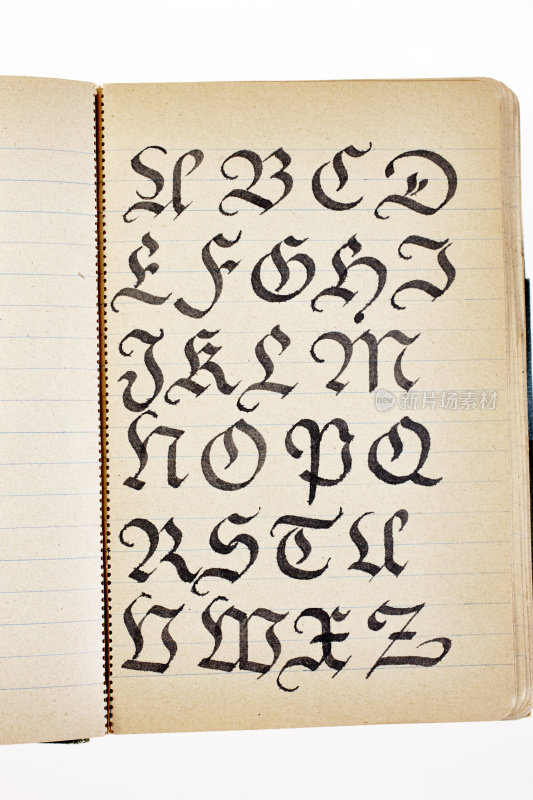 A B C D
E F G H I
J K L M
N O P Q
R S T U
V W X Z
new 新片场素材